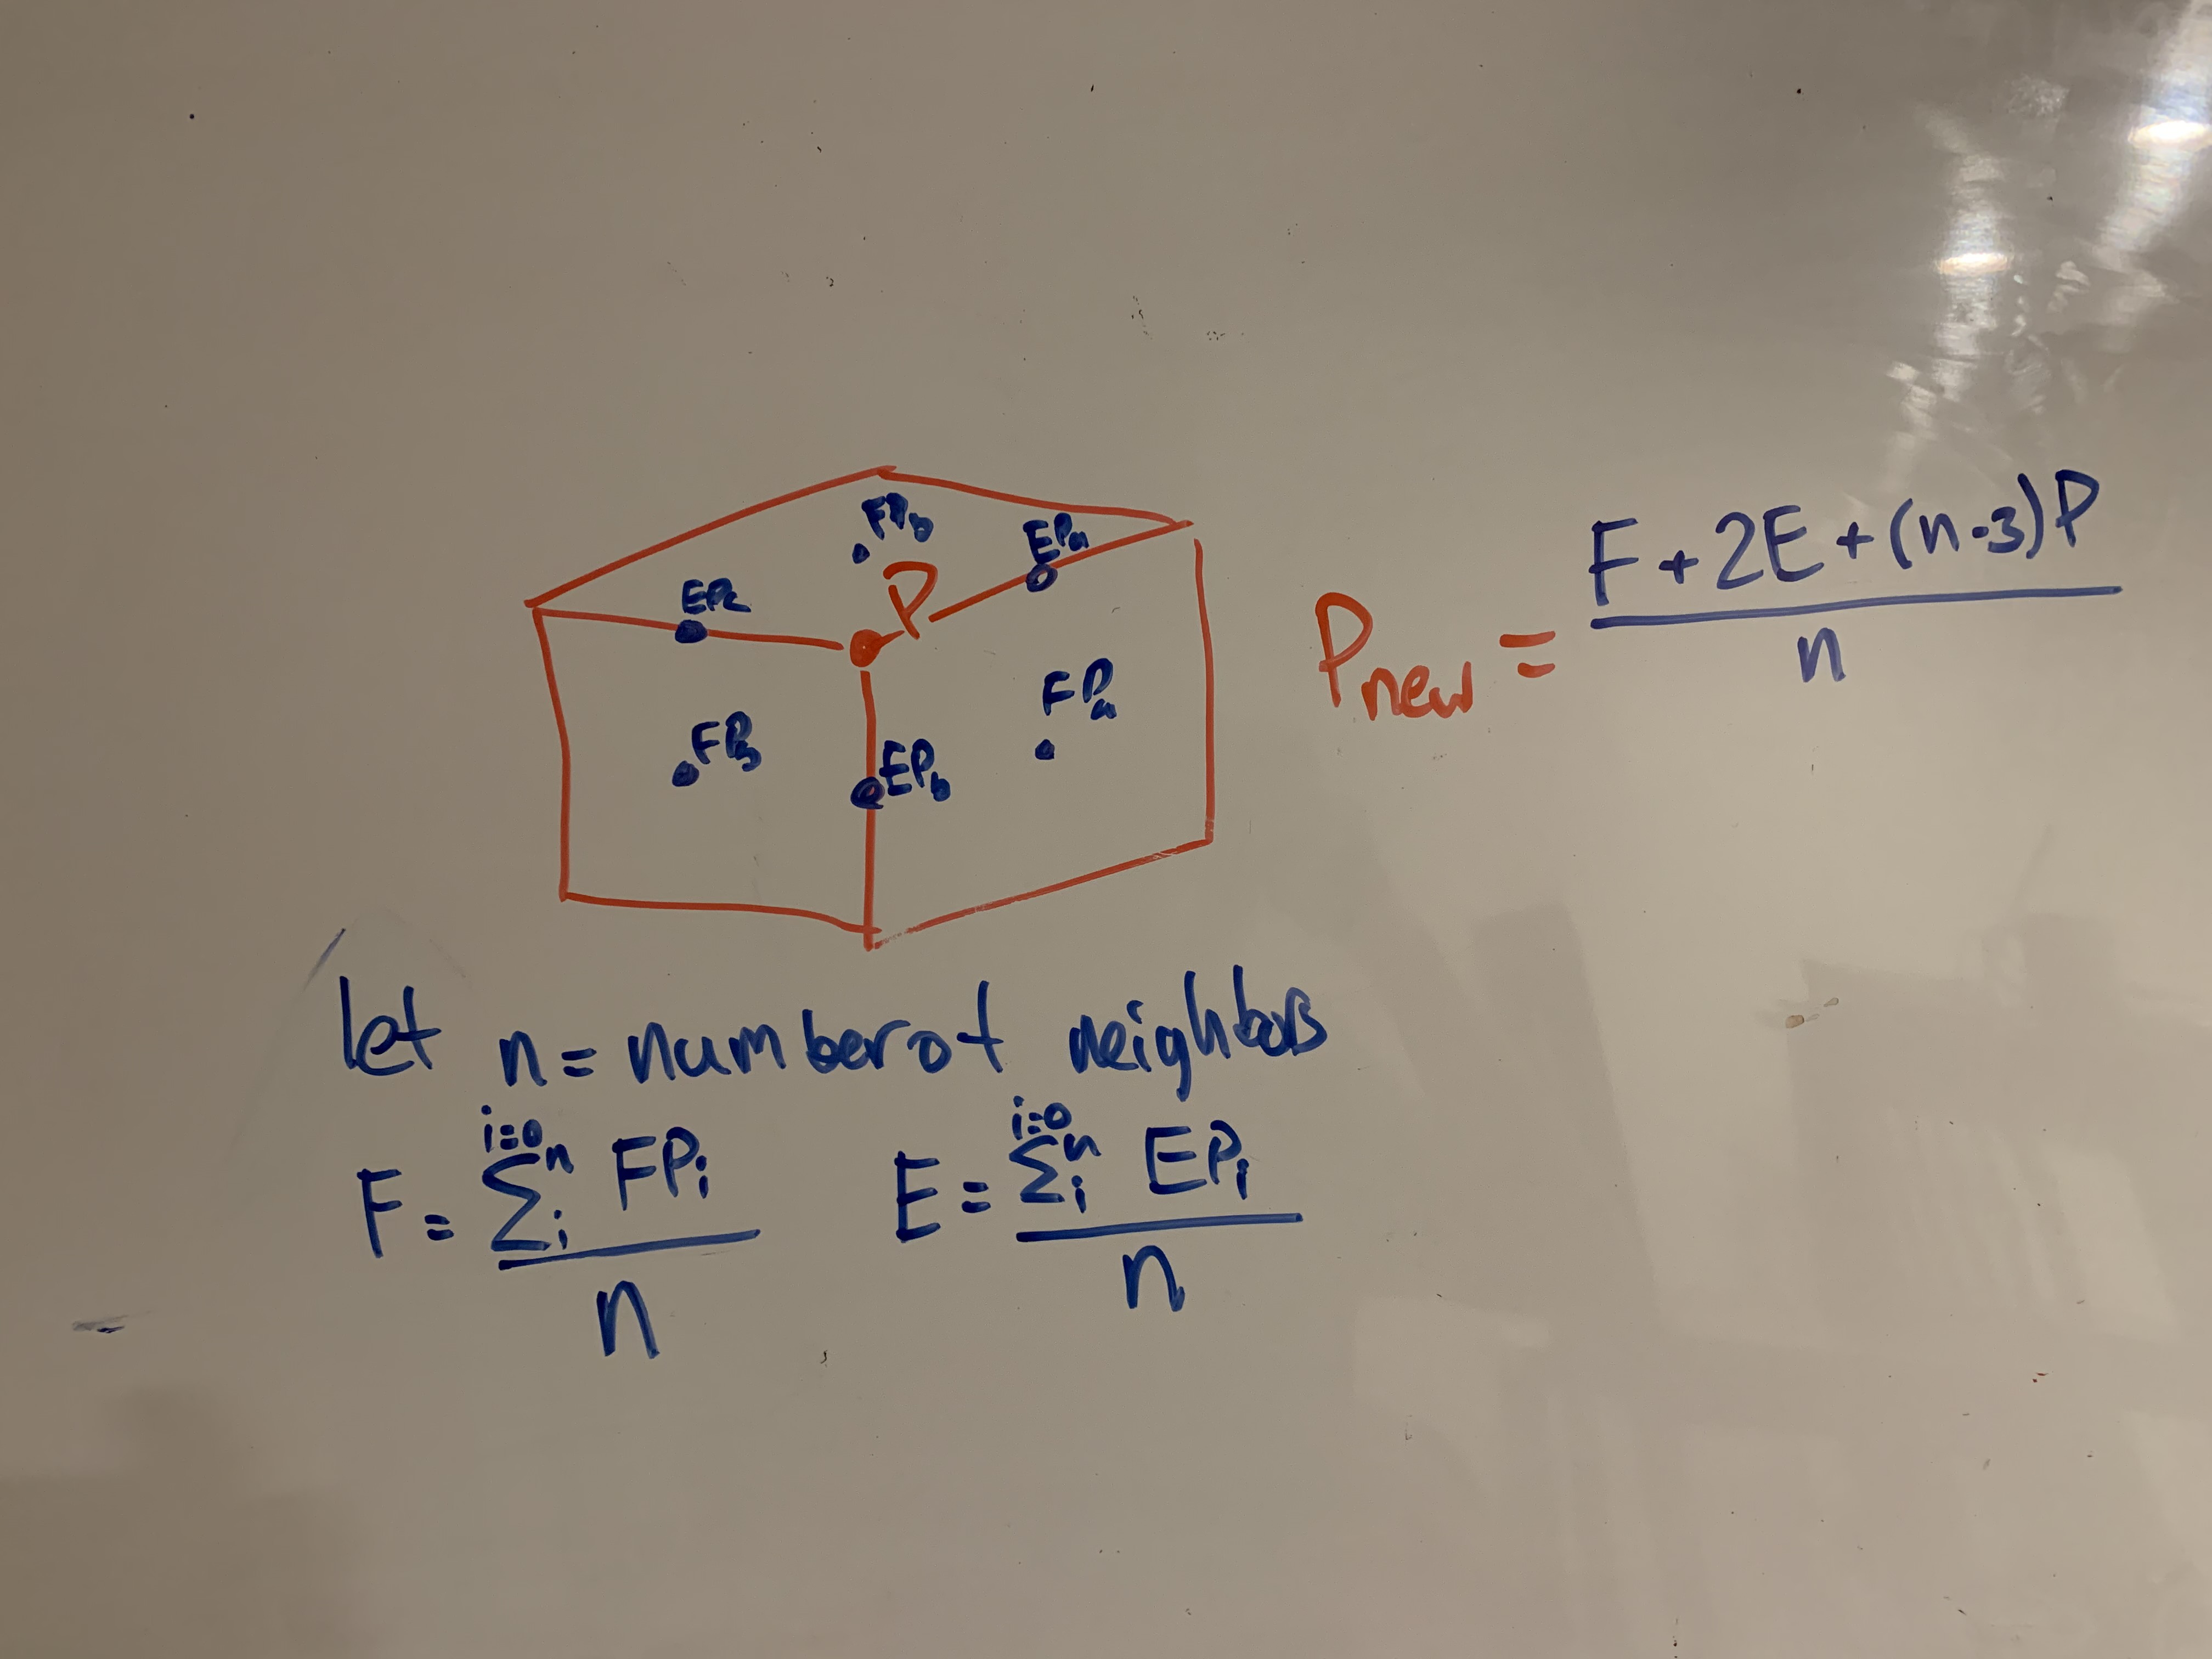 FP_b
EP_a
EP_c
P
FP_a
FP_b
EP_b
P_new = (F + 2E + (n-3)P) / n
let n = number of neighbors
F = (i=0 Σ_i^n FP_i) / n    E = (i=0 Σ_i^n EP_i) / n